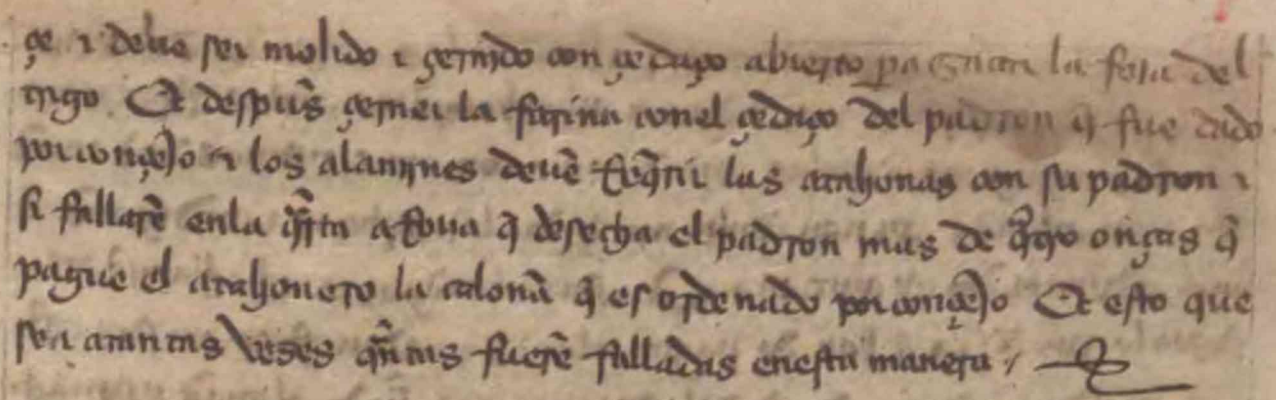 çe ⁊ deue ser molido ⁊ çernido con çedaço abierto pa la foja del
trigo Et despũs çerner la farina conel çedaço del padron q̃ fue dado
por conçejo ⁊ los alamines deuẽ las atahonas con su padron ⁊
si fallarẽ enla q̃rta arroua q̃ desecha el padron mas de q̃tro onças q̃
pague el atahonero la caloña q̃ es ordenado por conçejo Et esto que
sea atantas vezes q̃ntas fuerẽ falladas enesta manera /